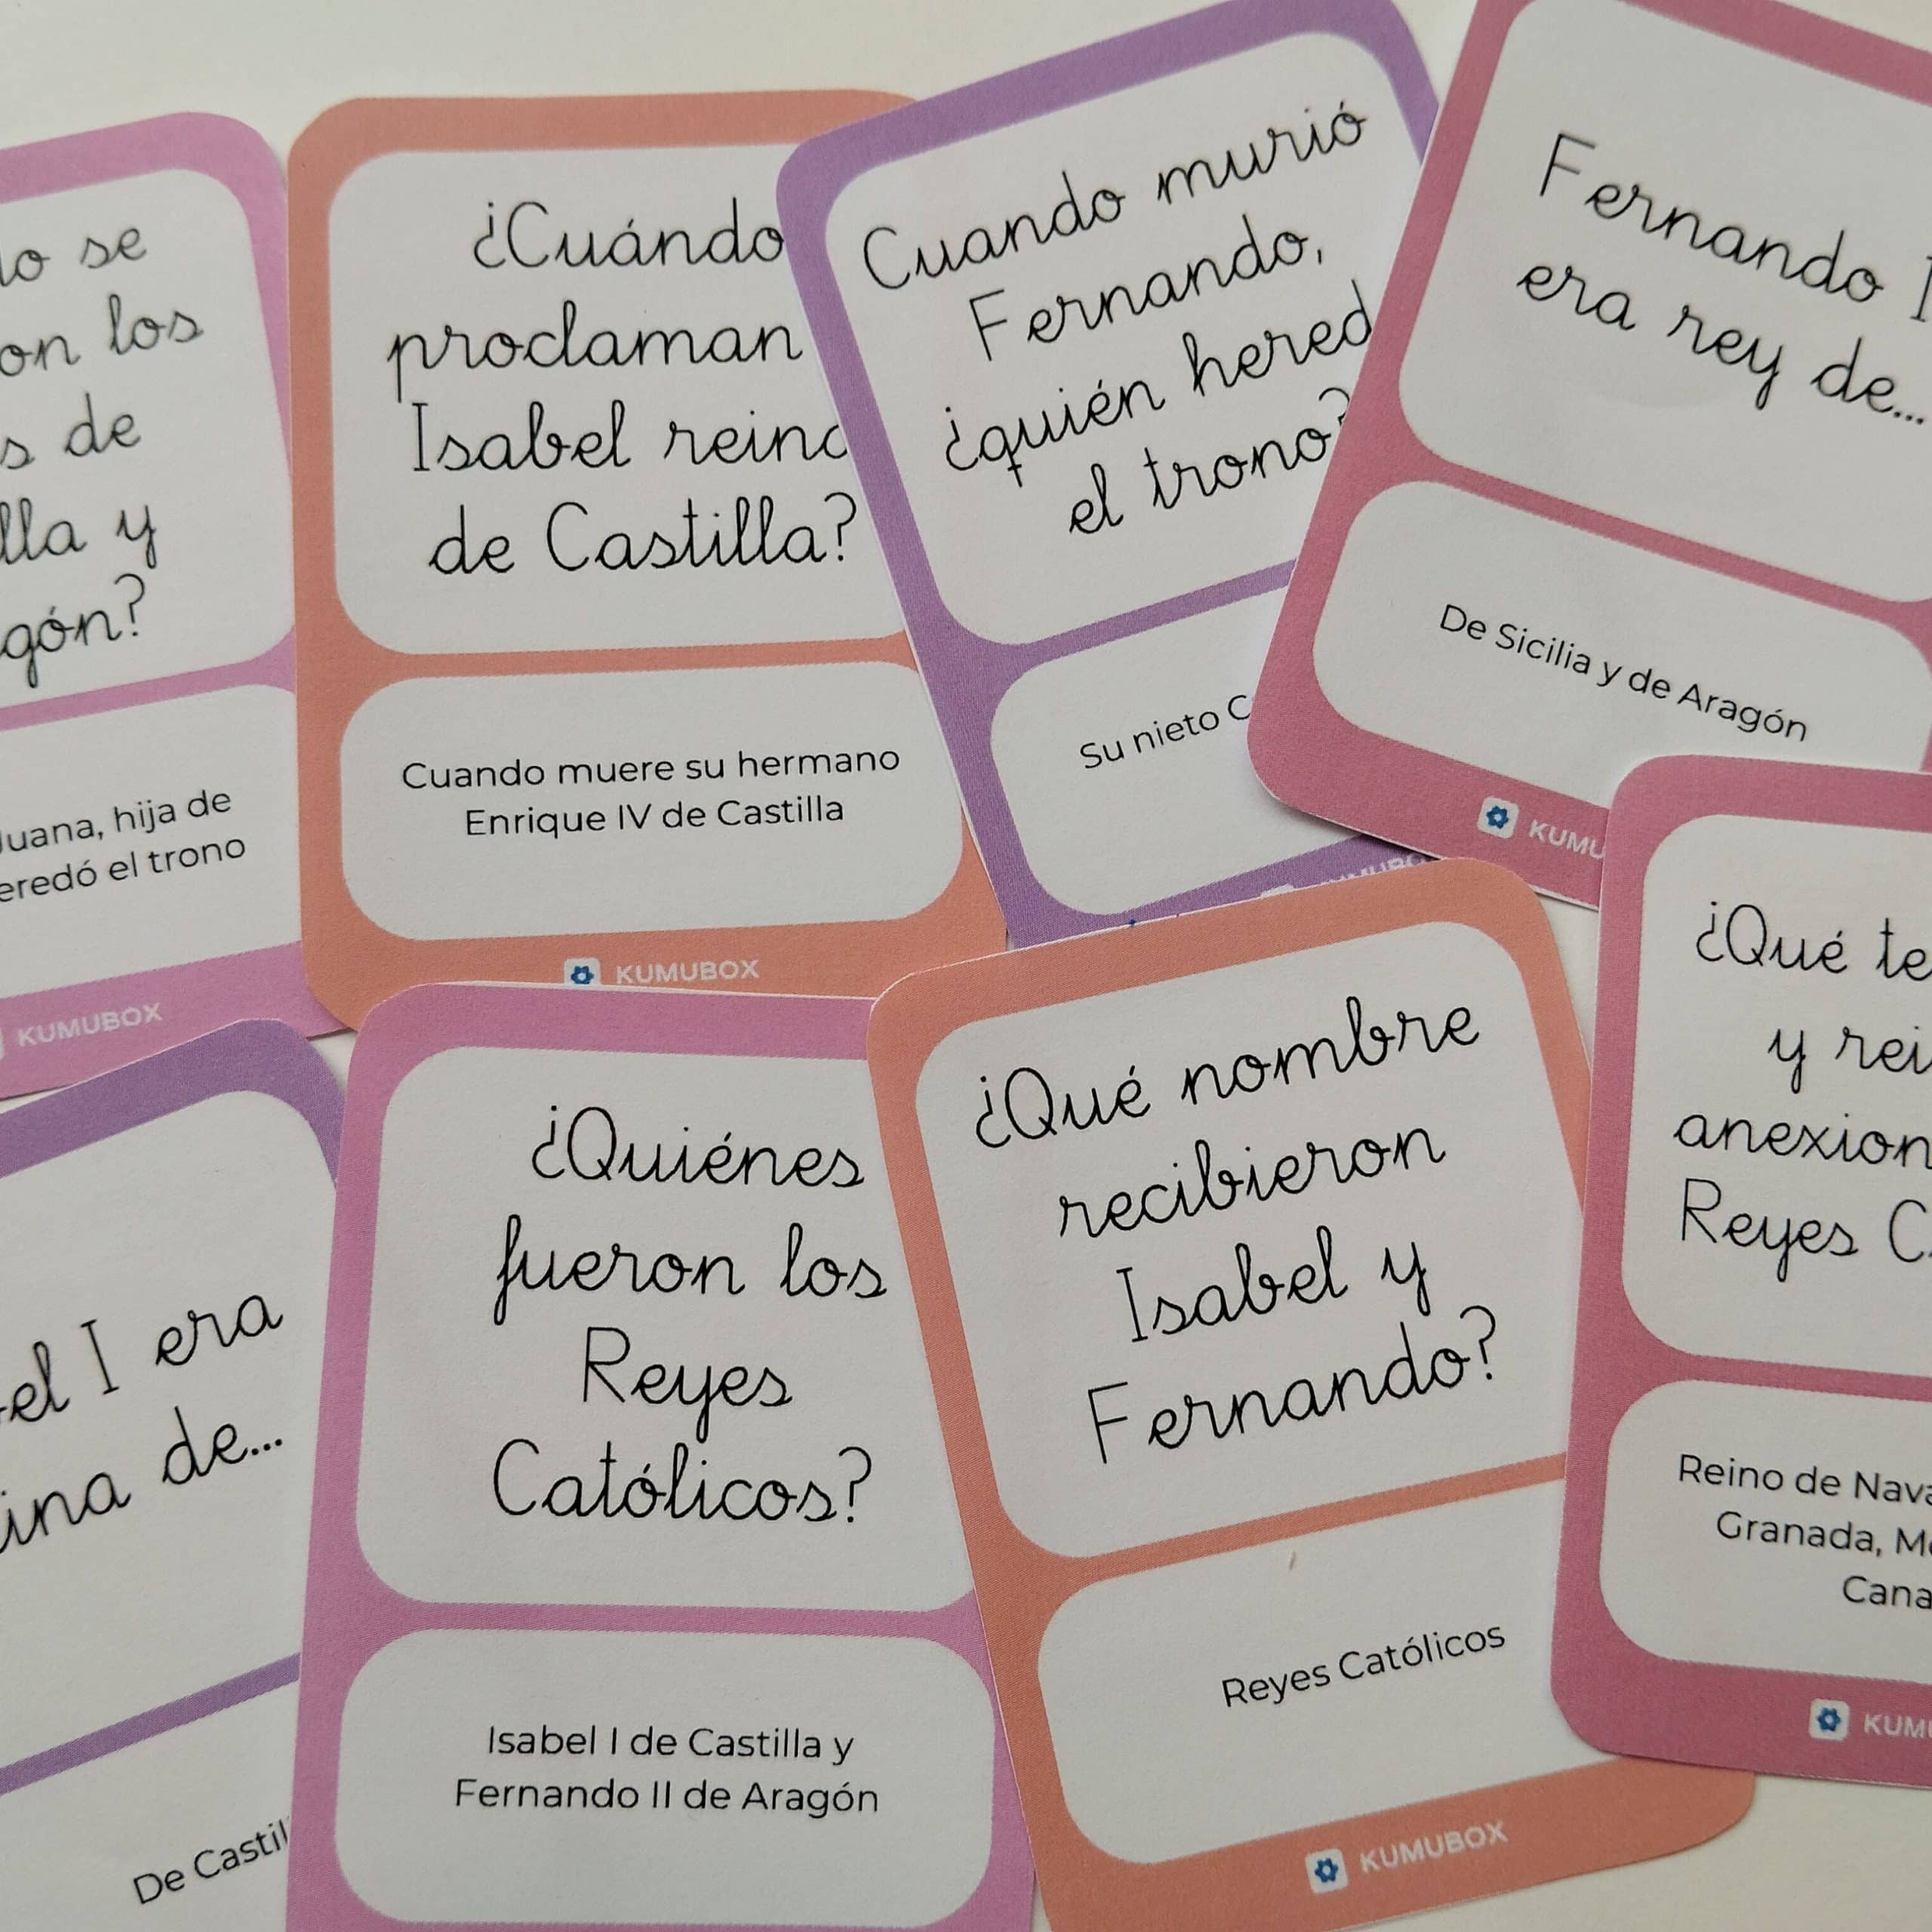 se
los
de
y
hija de
el trono
KUMUBOX
¿Cuándo
proclaman
Isabel
de Castilla?
Cuando muere su hermano
Enrique IV de Castilla
KUMUBOX
Cuando murió
Fernando,
¿quién
el trono?
Su nieto
Fernando
era rey de...
De Sicilia y de Aragón
I era
de...
De
¿Quiénes
fueron los
Reyes
Católicos?
Isabel I de Castilla y
Fernando II de Aragón
¿Qué nombre
recibieron
Isabel y
Fernando?
Reyes Católicos
KUMUBOX
¿Qué
y
Reyes
Reino de
Granada,